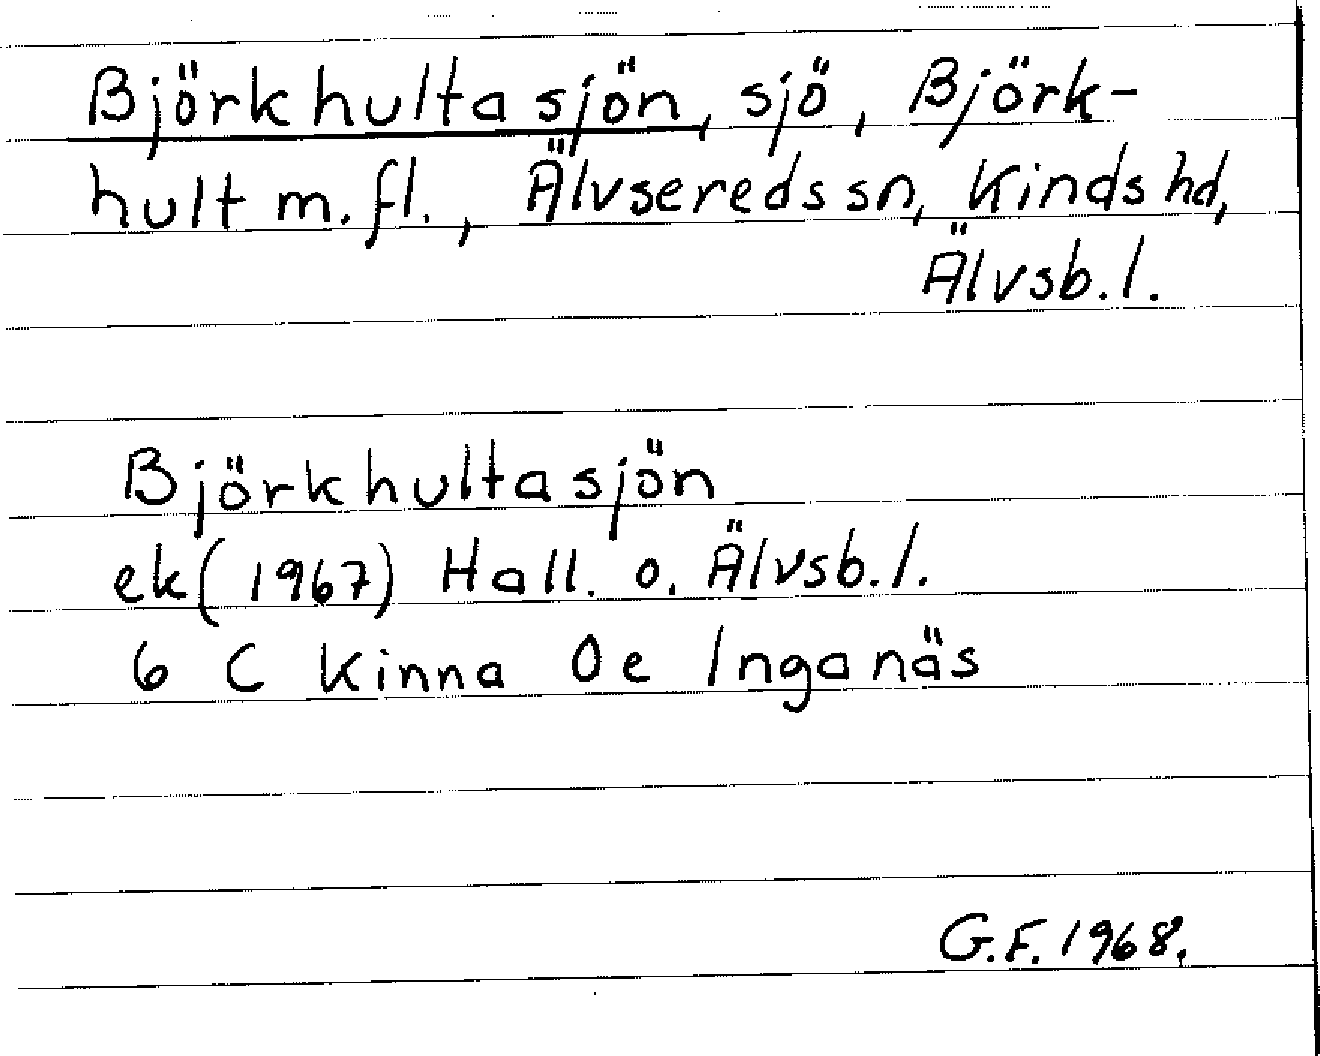 Björkhultasjön, sjö, Björk-
hult m.fl., Älvsereds sn, Kinds hd,
Älvsb.l.
Björkhultasjön
ek (1967) Hall. o. Älvsb.l.
6 C Kinna 0e Inganäs
G.F. 1968.